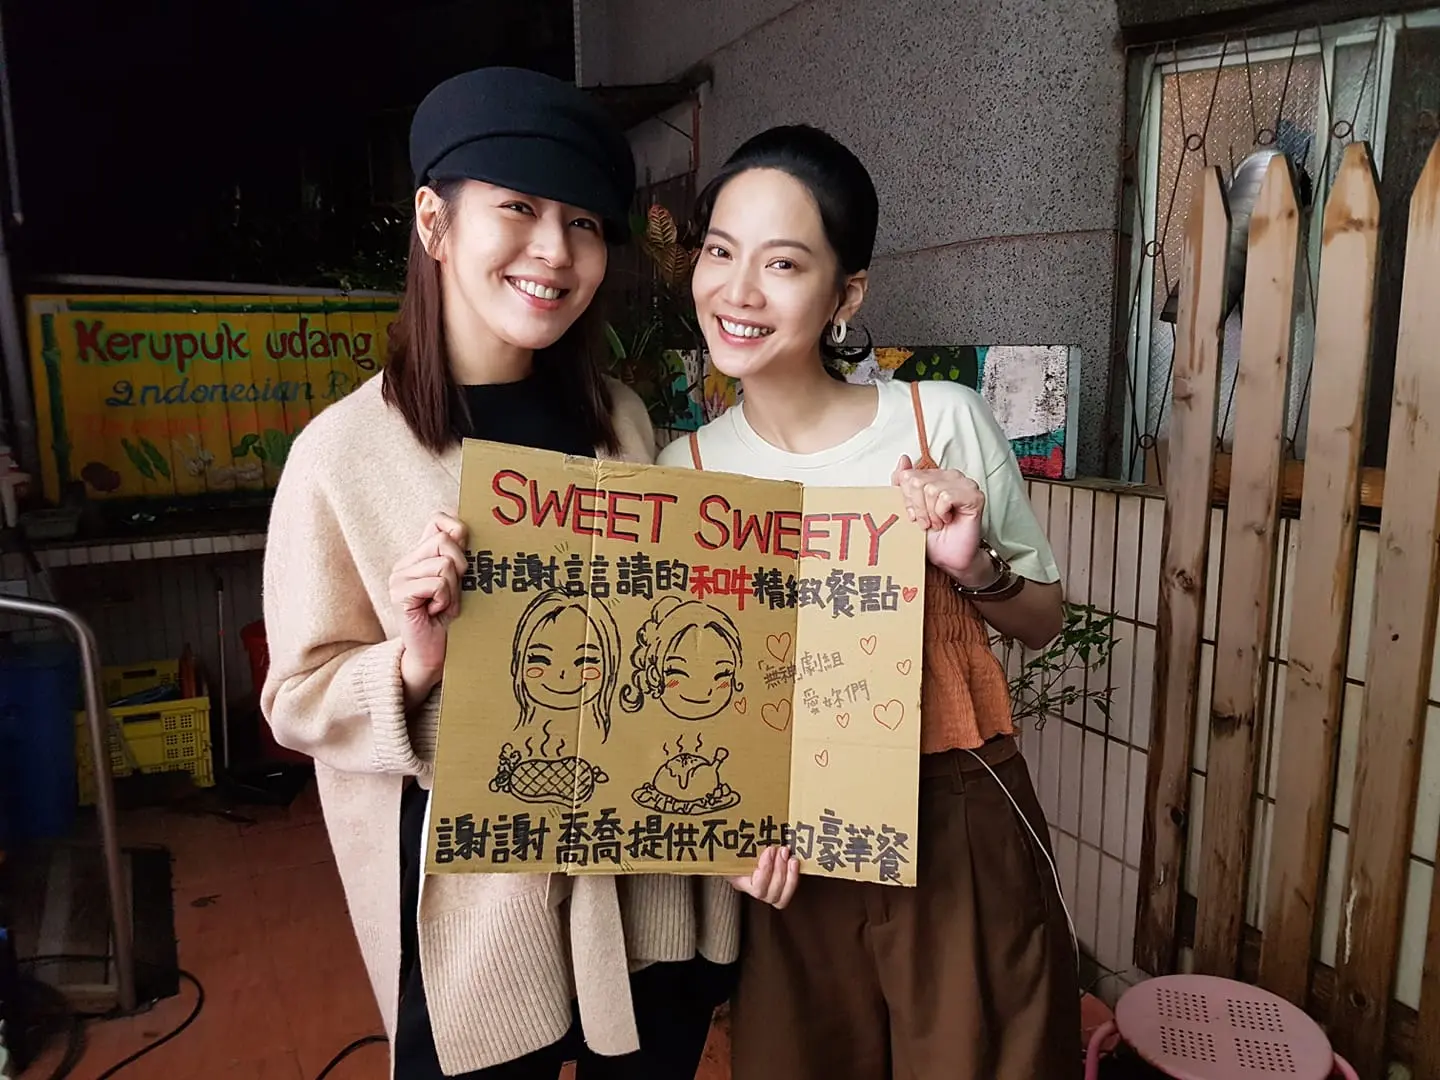 Kerupuk udang
Indonesian
SWEET SWEETY
謝謝言言請的和牛精緻餐點
「無神」劇組
愛妳們
謝謝喬喬提供不吃牛的豪華餐